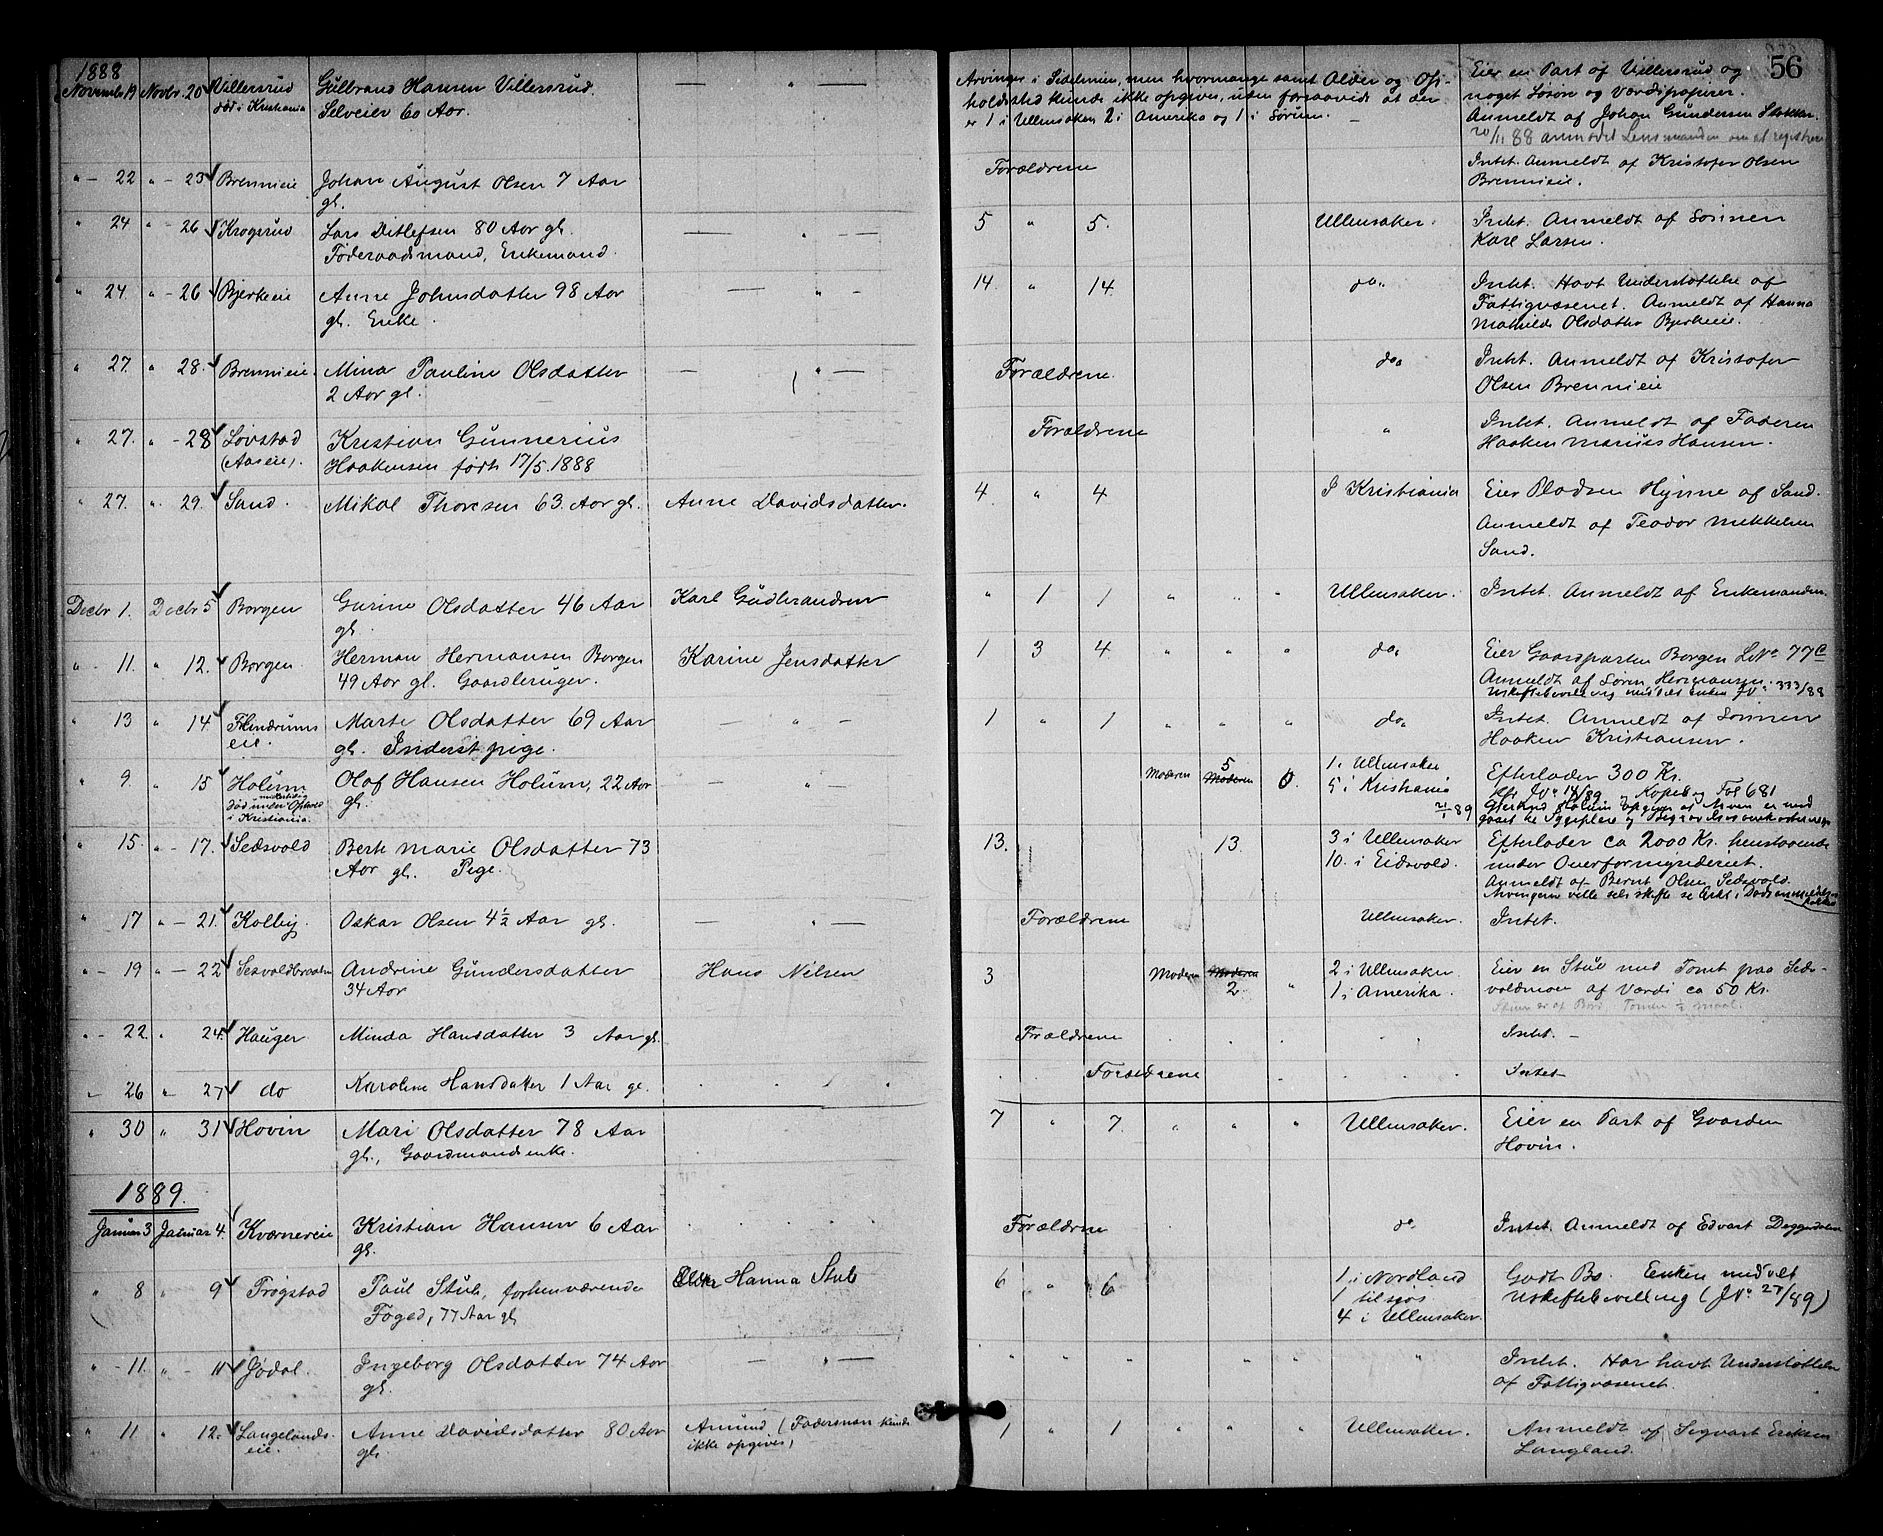 56
1888
Novembr 19 Novbr. 20 Villersrud Gulbrand Hansen Villersrud. — " — Arvinger i Sidelinien, men hvormange samt Alder og Op- Eier en Part af Villersrud og
død i Kristiania Selveier 60 Aar. holdssted kunde ikke opgives, uden forsaavidt at der noget Løsøre og Værdipapirer.
er 1 i Ullensaker, 2 i Amerika og 1 i Sørum. — Anmeldt af Johan Gundersen
20/11 88 anmodet Lensmanden om at registrere
" — 22 " — 23 Brennieie Johan August Olsen 7 Aar Forældrene Intet. Anmeldt af Kristofer Olsen
gl. Brennieie.
" 24 " — 26 Krogsrud Lars Ditlefsen 80 Aar gl. — " — 5 " 5. Ullensaker. Intet. Anmeldt af Sønnen
Føderaadsmand, Enkemand. Karl Larsen.
" 24. " — 26 Bjerkeie Anne Johnsdatter 98 Aar — " — 14. " 14. do. Intet. Havt Understøttelse af
gl. Enke. Fattigvæsenet. Anmeldt af Hanna
Mathilde Olsdatter Bjerkeie.
" 27. " 28. Brennieie. Mina Pauline Olsdatter — " — Forældrene. do. Intet. Anmeldt af Kristofer
2 Aar gl. Olsen Brennieie
" 27. " — 28 Løvstad Kristian Gunnerius Forældrene " Intet. Anmeldt af Faderen
(Aaseie). Haakensen født 17/5. 1888 Haaken Marius Hansen.
" 27. " 29. Sand. Mikal Thoresen 63. Aar gl. Anne Davidsdatter. 4 " 4 I Kristiania Eier Pladsen Hynne af Sand.
Anmeldt af Teodor Mikkelsen
Sand.
Decbr 1. Decbr 5 Borgen Gurine Olsdatter 46 Aar Karl Gudbrandsen " 1 1 " " " Ullensaker. Intet. Anmeldt af Enkemanden.
gl.
" — 11. " 12. Borgen. Herman Hermansen Borgen Karine Jensdatter 1 3 4 " " " do. Eier Gaardparten Borgen LNo 77c
49 Aar gl. Gaardbruger. Anmeldt af Søren Hermansen.
Uskiftebevilling meddelt enken JNo 333/88
" 13 " 14 Marte Olsdatter 69 Aar — " — 1 " 1 " " " do. Intet. Anmeldt af Sønnen
eie. gl. Inderst pige. Haaken Kristiansen.
" 9. " 15 Holum Olaf Hansen Holum, 22 Aar — " — Moderen 5 Moderen 6. 1 i Ullensaker Efterlader 300 Kr.
død under Ophold gl. 5 i Kristiania cfr JNo 14/89 og Kopibog Fol 681
i Kristiania. 21/1 89
" 15. " — 17. Sedsvold Berte Marie Olsdatter 73 13. 13. 3 i Ullensaker Efterlader ca 2000 Kr. henstaaende
Aar gl. Pige. 10. i Eidsvold. under Overformynderiet.
Anmeldt af Bernt Olsen Sedsvold.
" 17 " — 21. Kolby. Oskar Olsen 4½ Aar gl. — " — Forældrene Ullensaker. Intet.
" — 19 " — 22 Andrine Gundersdatter Hans Nilsen 3 Moderen Moderen " 2 i Ullensaker. Eier en Stue med Tomt paa Seds-
34 Aar 2. 1 i Amerika. voldmoen af Værdi ca 50 Kr.
" — 22. " 24. Hauger Minda Hansdatter 3 Aar gl. Forældrene Intet. —
" 26 " — 27 do Karoline Hansdatter 1 Aar gl. Forældrene Intet
" 30 " 31 Hovin Mari Olsdatter 78 Aar 7 " 7. " " " Ullensaker. Eier en Part af Gaarden
gl., Gaardmandsenke. Hovin.
1889.
Januar 3 Januar 4. Kværnereie Kristian Hansen 6 Aar Forældrene do. Intet. Anmeldt af Edvart
gl.
" 8 " 9 Trøgstad Paul Stub, forhenværende Hanna Stub 6 " 6 1 i Nordland Godt Bo. Enken meddelt
Foged, 77 Aar gl 1 tilsøs Uskiftebevilling (JNo 27/89)
4 i Ullensaker.
" — 11. " — 11 Jødal. Ingeborg Olsdatter 74 Aar — " — " " " " " " Intet. Har havt Understøttelse
gl. af Fattigvæsenet.
" 11 " 12. Langelands- Anne Davidsdatter 80 Aar Amund (Fadersnavn kunde 1 " 1 " " " Ullensaker. Anmeldt af Sigvart Eriksen
eie. gl. ikke opgives) Langland.